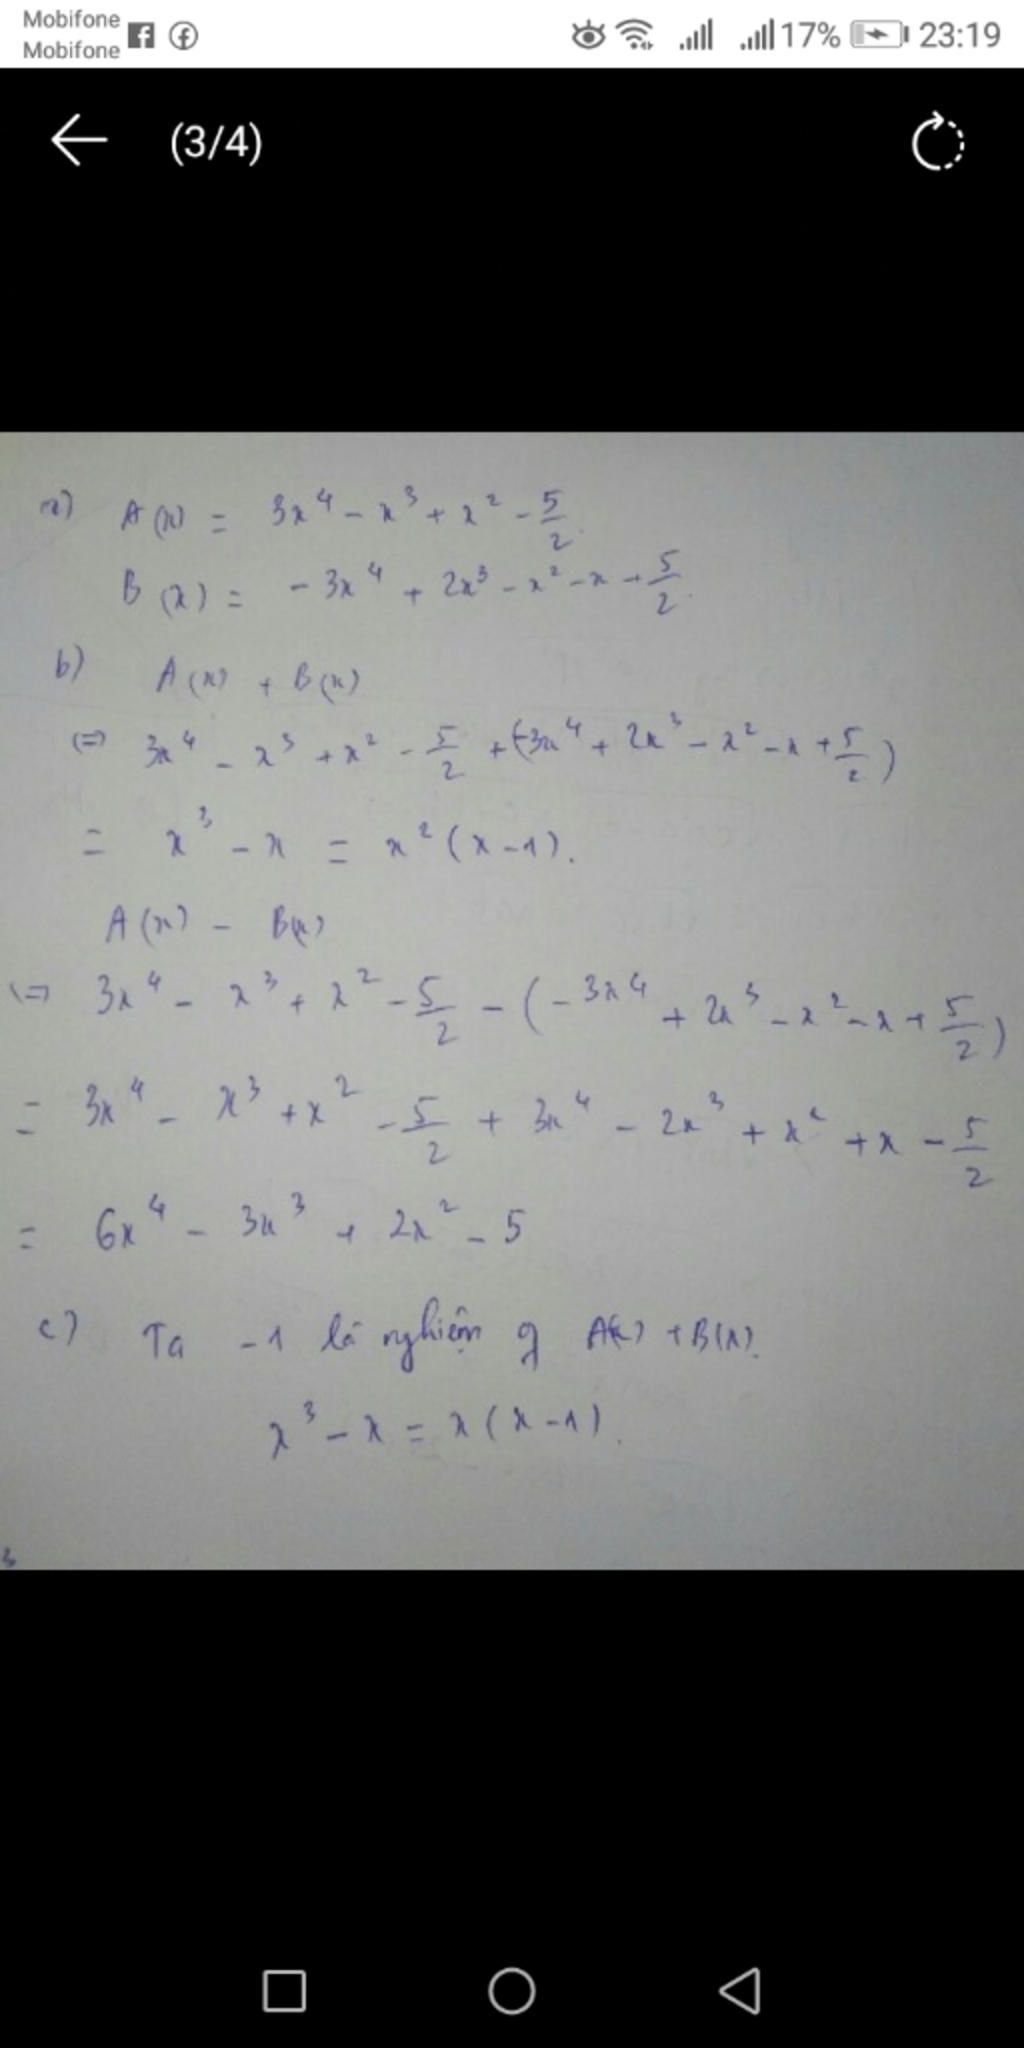 Mobifone
Mobifone
17% 23:19
(3/4)
a) A(x) = 3x⁴ - x³ + x² - 5/2.
B(x) = - 3x⁴ + 2x³ - x² - x + 5/2.
b) A(x) + B(x)
(=) 3x⁴ - x³ + x² - 5/2 + (-3x⁴ + 2x³ - x² - x + 5/2)
= x³ - x = x² (x - 1).
A(x) - B(x)
(=) 3x⁴ - x³ + x² - 5/2 - (- 3x⁴ + 2x³ - x² - x + 5/2)
= 3x⁴ - x³ + x² - 5/2 + 3x⁴ - 2x³ + x² + x - 5/2
= 6x⁴ - 3x³ + 2x² - 5
c) Ta -1 là nghiệm A(x) + B(x).
x³ - x = x (x - 1).